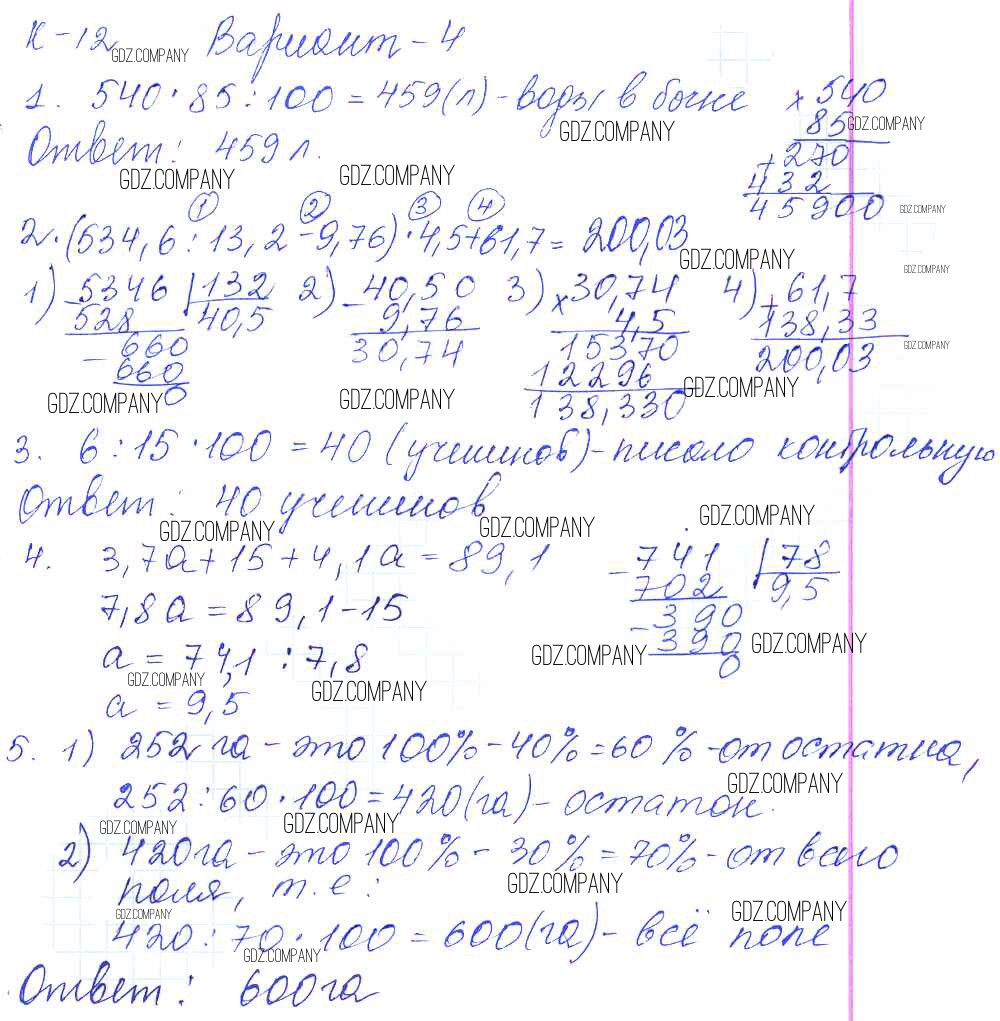 К-12 Вариант-4
GDZ.COMPANY
1. 540·85:100=459(л)-воды в бочке ×540
85 GDZ.COMPANY
GDZ.COMPANY
Ответ: 459 л. +270
GDZ.COMPANY GDZ.COMPANY 432
45900 GDZ.COMPANY
1 2 3 4
2. (534,6:13,2-9,76)·4,5+61,7=200,03
GDZ.COMPANY GDZ.COMPANY
1) -5346 |132 2) -40,50 3) ×30,74 4) +61,7
528 40,5 9,76 4,5 138,33
-660 30,74 15370 200,03 GDZ.COMPANY
660 12296
0 138,330
GDZ.COMPANY GDZ.COMPANY GDZ.COMPANY
3. 6:15·100=40 (учеников)-писало контрольную
Ответ: 40 учеников
GDZ.COMPANY GDZ.COMPANY GDZ.COMPANY
4. 3,7а+15+4,1а=89,1 -741 |78
7,8а=89,1-15 702 9,5
-390
а=74,1:7,8 390
GDZ.COMPANY GDZ.COMPANY 0
GDZ.COMPANY GDZ.COMPANY
а=9,5
5. 1) 252 га-это 100%-40%=60%-от остатка,
GDZ.COMPANY
252:60·100=420(га)-остаток.
GDZ.COMPANY GDZ.COMPANY
2) 420га-это 100%-30%=70%-от всего
поля, т.е:
GDZ.COMPANY
GDZ.COMPANY GDZ.COMPANY
420:70·100=600(га)-всё поле
GDZ.COMPANY
Ответ: 600га